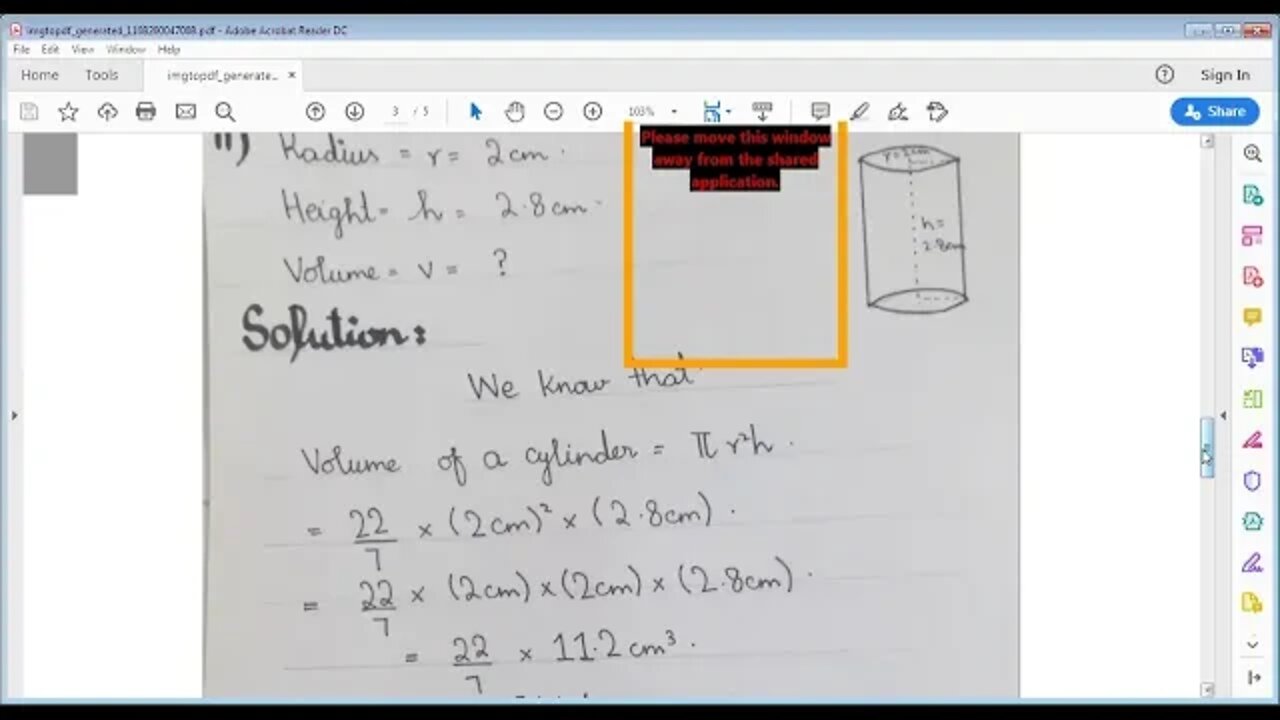 imgtopdf_generated_1108200047008.pdf - Adobe Acrobat Reader DC
File Edit View Window Help
Home Tools imgtopdf_generate... × Sign In
3 / 5 103% Share
ii) Radius = r = 2cm.
Height = h = 2.8cm.
Volume = v = ?
Please move this window
away from the shared
application.
r=2cm
h=
2.8cm
Solution:
We know that
Volume of a cylinder = π r²h.
= 22/7 × (2cm)² × (2.8cm).
= 22/7 × (2cm) × (2cm) × (2.8cm).
= 22/7 × 11.2 cm³.